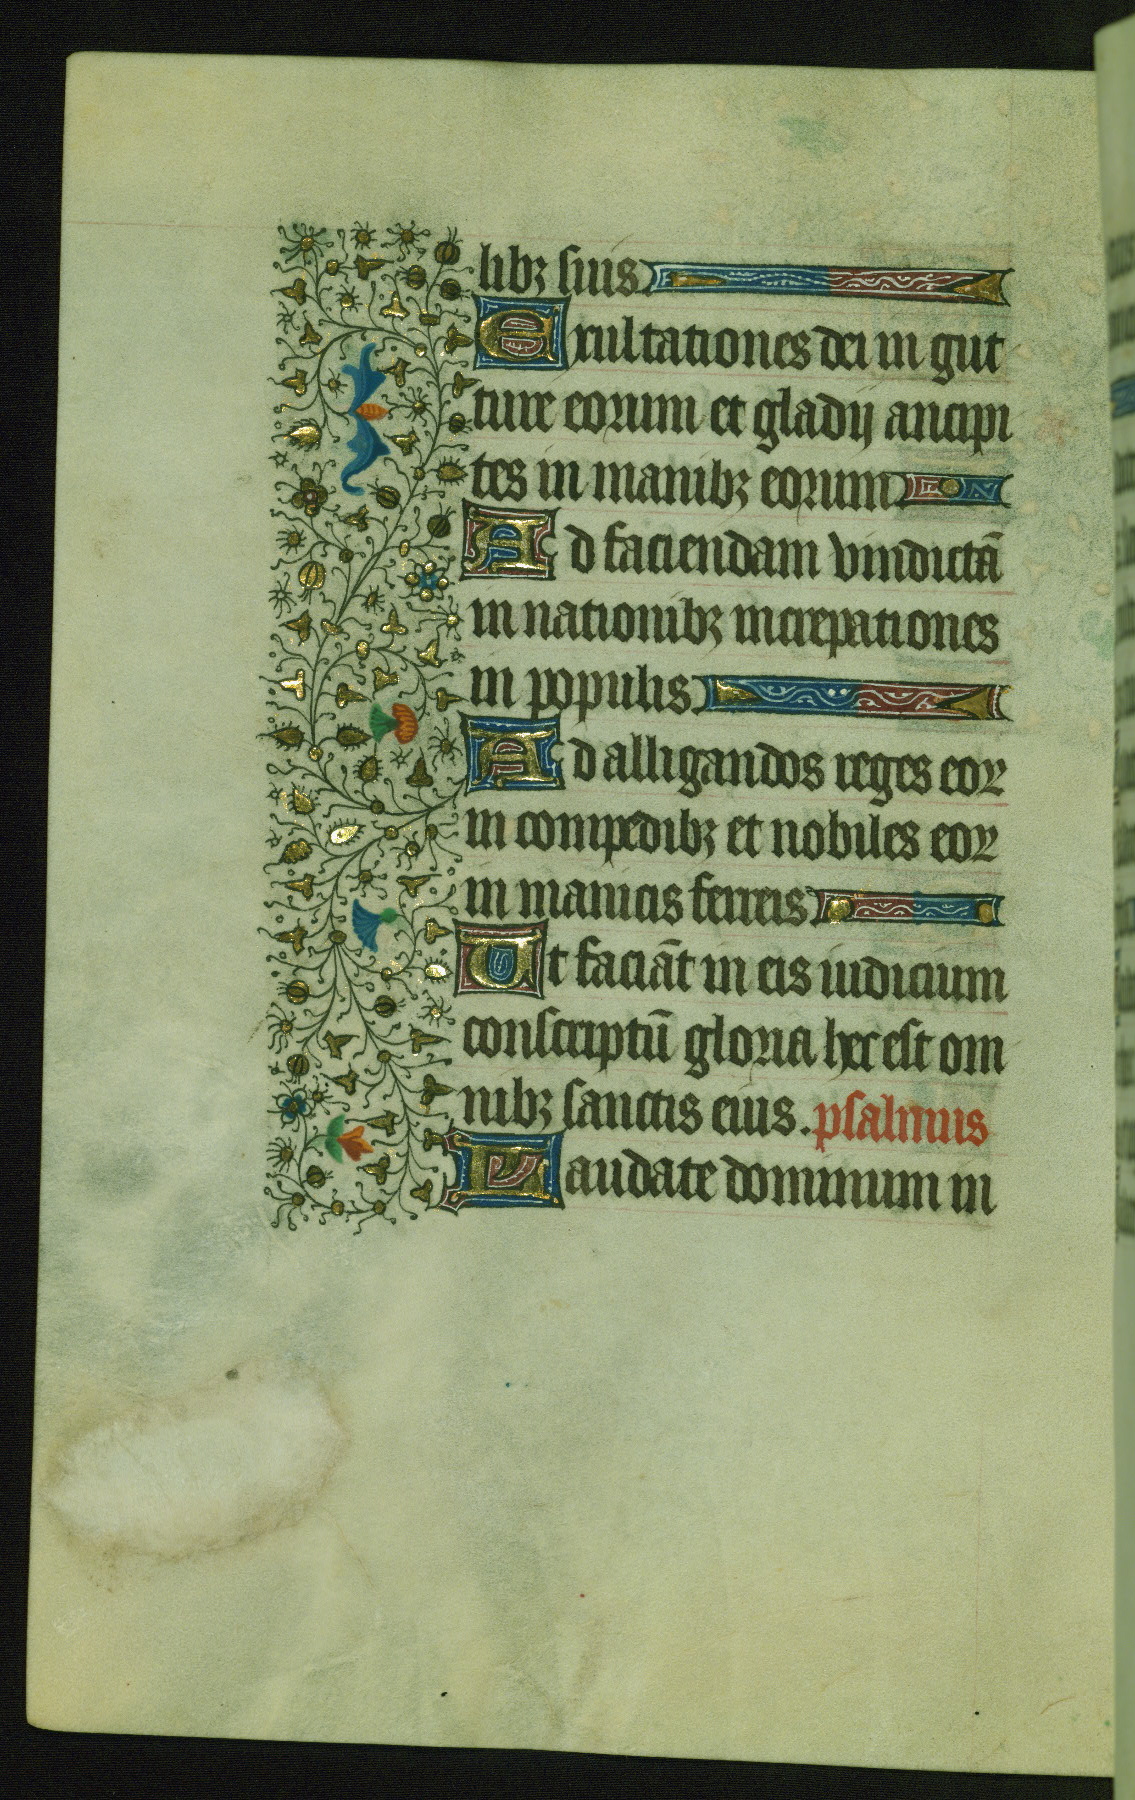 libꝫ suis
Exultationes dei in gut
ture eorum et gladij ancipi
tes in manibꝫ eorum
Ad faciendam vindictā
in nationibꝫ increpationes
in populis
Ad alligandos reges eoꝝ
in compedibꝫ et nobiles eoꝝ
in manicis ferreis
Ut faciāt in eis iudicium
conscriptū gloria hec est om
nibꝫ sanctis eius. psalmus
Laudate dominum in